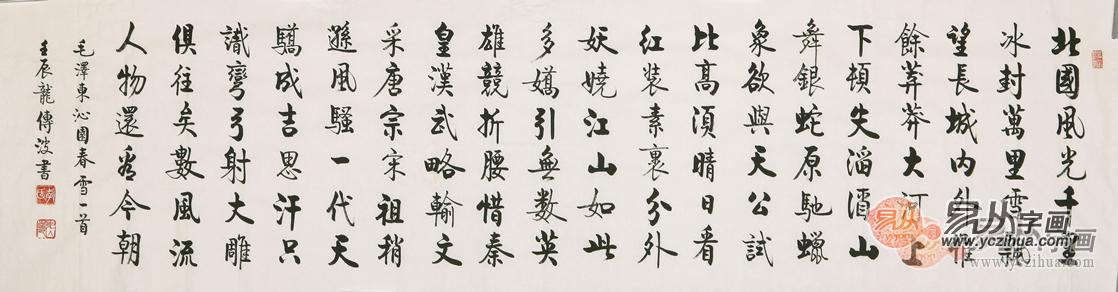 北國風光千里
冰封萬里雪飄
望長城内外惟
餘莽莽大河上
下頓失滔滔山
舞銀蛇原馳蠟
象欲與天公試
比高須晴日看
紅裝素裹分外
妖嬈江山如此
多嬌引無數英
雄競折腰惜秦
皇漢武略輸文
采唐宗宋祖稍
遜風騷一代天
驕成吉思汗只
識彎弓射大雕
俱往矣數風流
人物還看今朝
毛澤東沁園春雪一首
壬辰龍傳波書
易从字画
www.yczihua.com